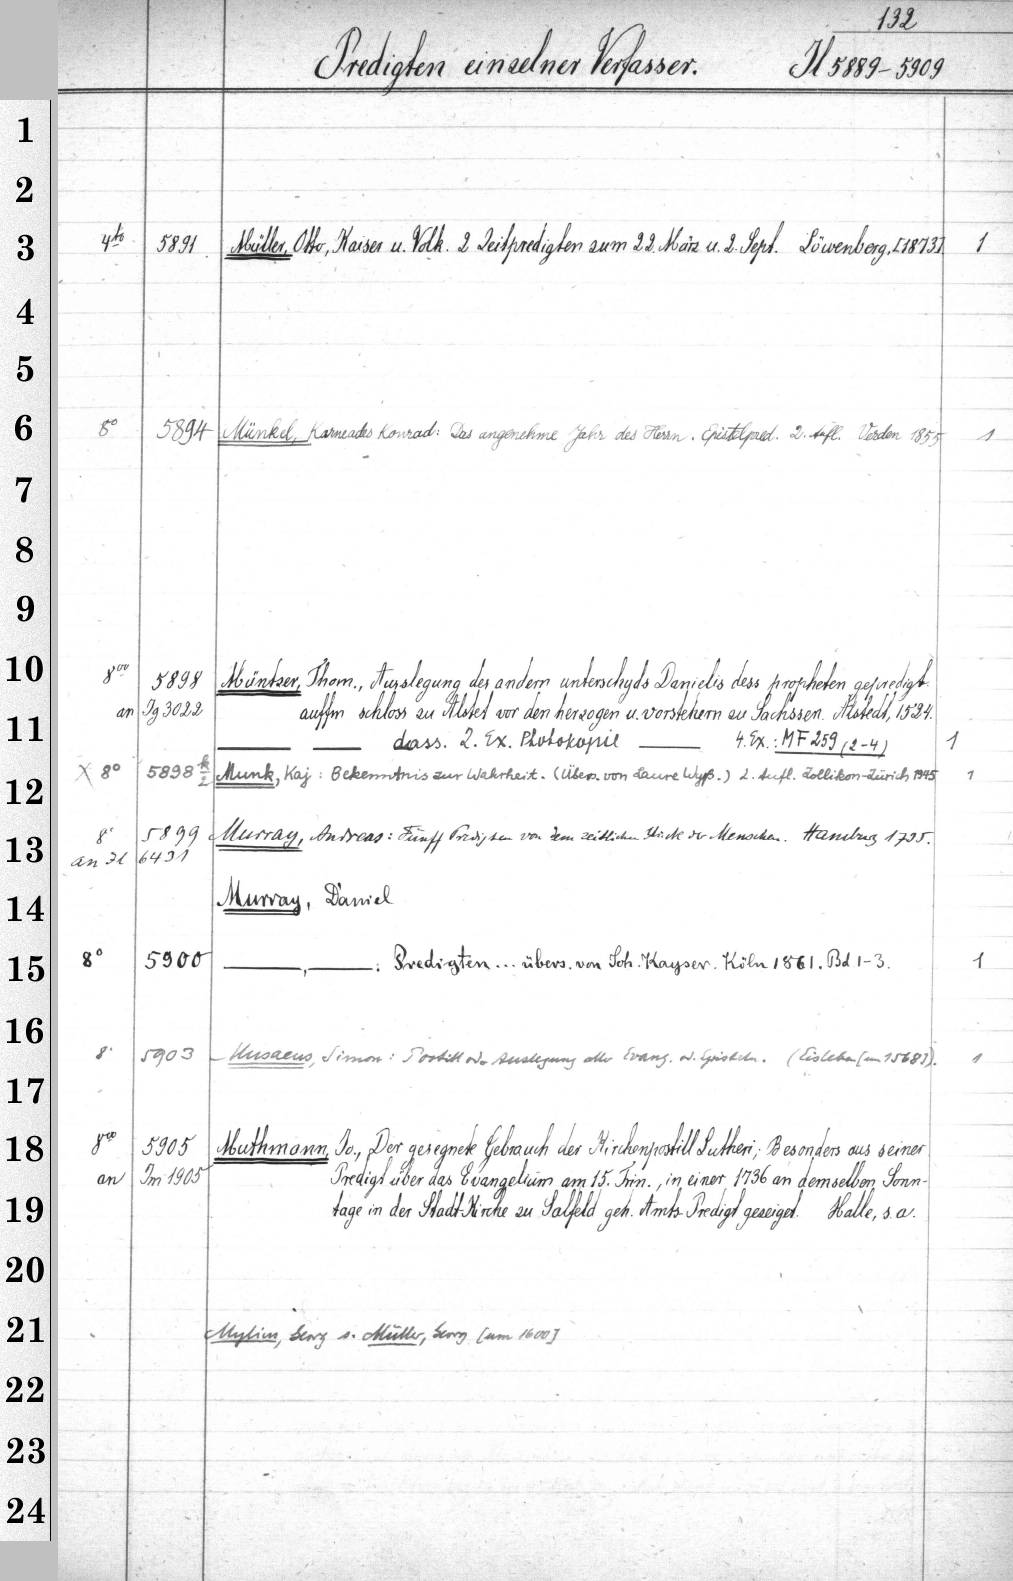 132
Predigten einzelner Verfasser. Il 5889-5909
1
2
3 4to 5891 Müller, Otto, Kaiser u. Volk. 2 Zeitpredigten zum 22. März u. 2. Sept. Löwenberg, [1873]. 1
4
5
6 8o 5894 Münkel, Karneades Konrad: Das angenehme Jahr des Herrn. Epistelpred. 2. Aufl. Verden 1855 1
7
8
9
10 8vo 5898 Müntzer, Thom., Auszlegung des andern unterschyds Danielis dess propheten gepredigt
an Ig 3022 auffm schloss zu Alstet vor den herzogen u. vorstehern zu Sachssen. Alstedt, 1524.
11 dass. 2. Ex. Photokopie 4. Ex.: MF 259 (2-4) 1
12 X 8o 5898 k/2 Munk, Kaj: Bekenntnis zur Wahrheit. (Übers. von Laure Wyß.) 2. Aufl. Zollikon-Zürich 1945 1
13 8o 5899 Murray, Andreas: Fünff Predigten von dem zeitlichen Glücke der Menschen. Hamburg 1735.
an Il 6431
14 Murray, Daniel
15 8o 5900 , : Predigten... übers. von Joh. Kayser. Köln 1861. Bd 1-3. 1
16 8o 5903 Musaeus, Simon: Postill oder Auslegung aller Evang. u. Episteln. (Eisleben [um 1568]). 1
17
18 8vo 5905 Muthmann, Jo., Der gesegnete Gebrauch der Kirchenpostill Lutheri, Besonders aus seiner
an Im 1905 Predigt über das Evangelium am 15. Trin., in einer 1736 an demselben Sonn-
19 tage in der Stadt-Kirche zu Salfeld geh. Amts-Predigt gezeiget. Halle, s.a.
20
21 Mylius, Georg s. Müller, Georg [um 1600]
22
23
24